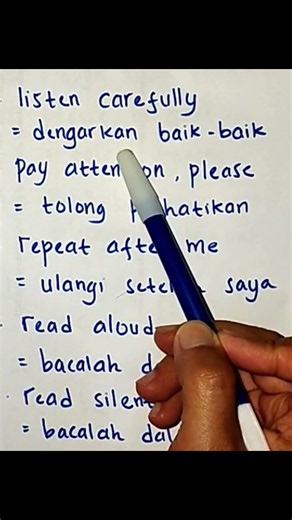 listen carefully
= dengarkan baik-baik
pay attention, please
= tolong perhatikan
repeat after me
= ulangi setelah saya
read aloud
= bacalah
read
= bacalah